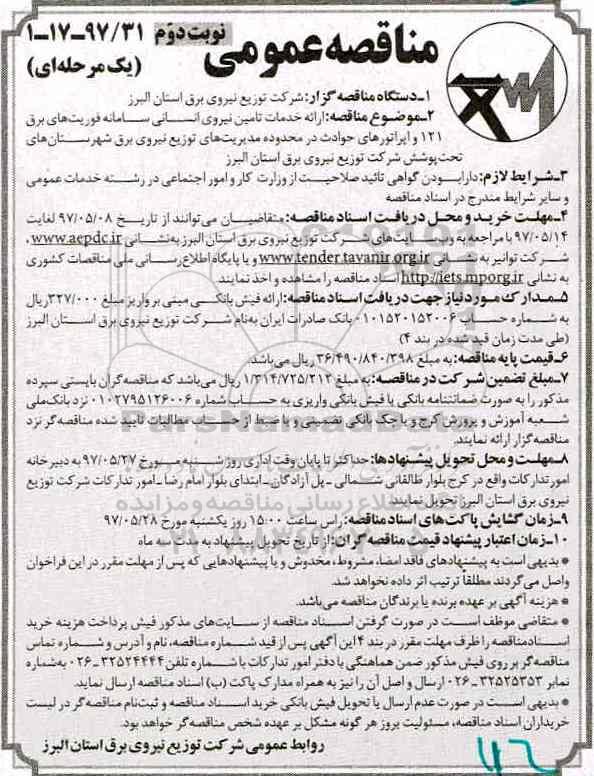 مناقصه عمومی
نوبت دوم
۹۷/۳۱-۱۷-۱
(یک مرحله‌ای)
۱-دستگاه مناقصه گزار: شرکت توزیع نیروی برق استان البرز
۲-موضوع مناقصه: ارائه خدمات تامین نیروی انسانی سامانه فوریت‌های برق
۱۲۱ و اپراتورهای حوادث در محدوده مدیریت‌های توزیع نیروی برق شهرستان‌های
تحت پوشش شرکت توزیع نیروی برق استان البرز
۳-شرایط لازم: دارا بودن گواهی تائید صلاحیت از وزارت کار و امور اجتماعی در رشته خدمات عمومی
و سایر شرایط مندرج در اسناد مناقصه
۴-مهلت خرید و محل دریافت اسناد مناقصه: متقاضیان می‌توانند از تاریخ ۹۷/۰۵/۰۸ لغایت
۹۷/۰۵/۱۴ با مراجعه به وب سایت‌های شرکت توزیع نیروی برق استان البرز به نشانی www.aepdc.ir ،
شرکت توانیر به نشانی www.tender.tavanir.org.ir و یا پایگاه اطلاع رسانی ملی مناقصات کشوری
به نشانی http://iets.mporg.ir اسناد مناقصه را مشاهده و اخذ نمایند.
۵-مدارک مورد نیاز جهت دریافت اسناد مناقصه: ارائه فیش بانکی مبنی بر واریز مبلغ ۳۲۷/۰۰۰ ریال
به شماره حساب ۰۱۰۱۵۲۰۱۵۲۰۰۶ بانک صادرات ایران به‌نام شرکت توزیع نیروی برق استان البرز
(طی مدت زمان قید شده در بند ۴)
۶-قیمت پایه مناقصه: به مبلغ ۳۶/۴۹۰/۸۴۰/۳۹۸ ریال می‌باشد.
۷-مبلغ تضمین شرکت در مناقصه: به مبلغ ۱/۳۱۴/۷۲۵/۲۱۲ ریال می‌باشد که مناقصه‌گران بایستی سپرده
مذکور را به صورت ضمانتنامه بانکی یا فیش بانکی واریزی به حساب شماره ۰۱۰۲۷۹۵۱۲۶۰۰۶ نزد بانک ملی
شعبه آموزش و پرورش کرج و یا چک بانکی تضمینی و یا ضبط از حسب مطالبات تایید شده مناقصه‌گر نزد
مناقصه‌گزار ارائه نمایند.
۸-مهلت و محل تحویل پیشنهادها: حداکثر تا پایان وقت اداری روز شنبه مورخ ۹۷/۰۵/۲۷ به دبیرخانه
امور تدارکات واقع در کرج بلوار طالقانی شمالی - پل آزادگان - ابتدای بلوار امام رضا - امور تدارکات شرکت توزیع
نیروی برق استان البرز تحویل نمایند.
۹-زمان گشایش پاکت‌های اسناد مناقصه: راس ساعت ۱۵:۰۰ روز یکشنبه مورخ ۹۷/۰۵/۲۸
۱۰-زمان اعتبار پیشنهاد قیمت مناقصه گران: از تاریخ تحویل پیشنهاد به مدت سه ماه
* بدیهی است به پیشنهادهای فاقد امضا، مشروط، مخدوش و یا پیشنهادهایی که پس از مهلت مقرر در این فراخوان
واصل می‌گردند مطلقاً ترتیب اثر داده نخواهد شد.
* هزینه آگهی بر عهده برنده یا برندگان مناقصه می‌باشد.
* متقاضی موظف است در صورت گرفتن اسناد مناقصه از سایت‌های مذکور فیش پرداخت هزینه خرید
اسناد مناقصه را ظرف مهلت مقرر در بند ۴ این آگهی پس از قید شماره مناقصه، نام و آدرس و شماره تماس
مناقصه‌گر بر روی فیش مذکور ضمن هماهنگی با دفتر امور تدارکات با شماره تلفن ۳۲۵۲۴۴۴۴-۰۲۶ به‌شماره
نمابر ۳۲۵۲۵۳۵۳-۰۲۶ ارسال و اصل آن را نیز به همراه مدارک پاکت (ب) اسناد مناقصه ارسال نماید.
* بدیهی است در صورت عدم ارسال یا تحویل فیش بانکی خرید اسناد مناقصه و ثبت‌نام مناقصه‌گر در لیست
خریداران اسناد مناقصه، مسئولیت بروز هر گونه مشکل بر عهده شخص مناقصه‌گر خواهد بود.
روابط عمومی شرکت توزیع نیروی برق استان البرز